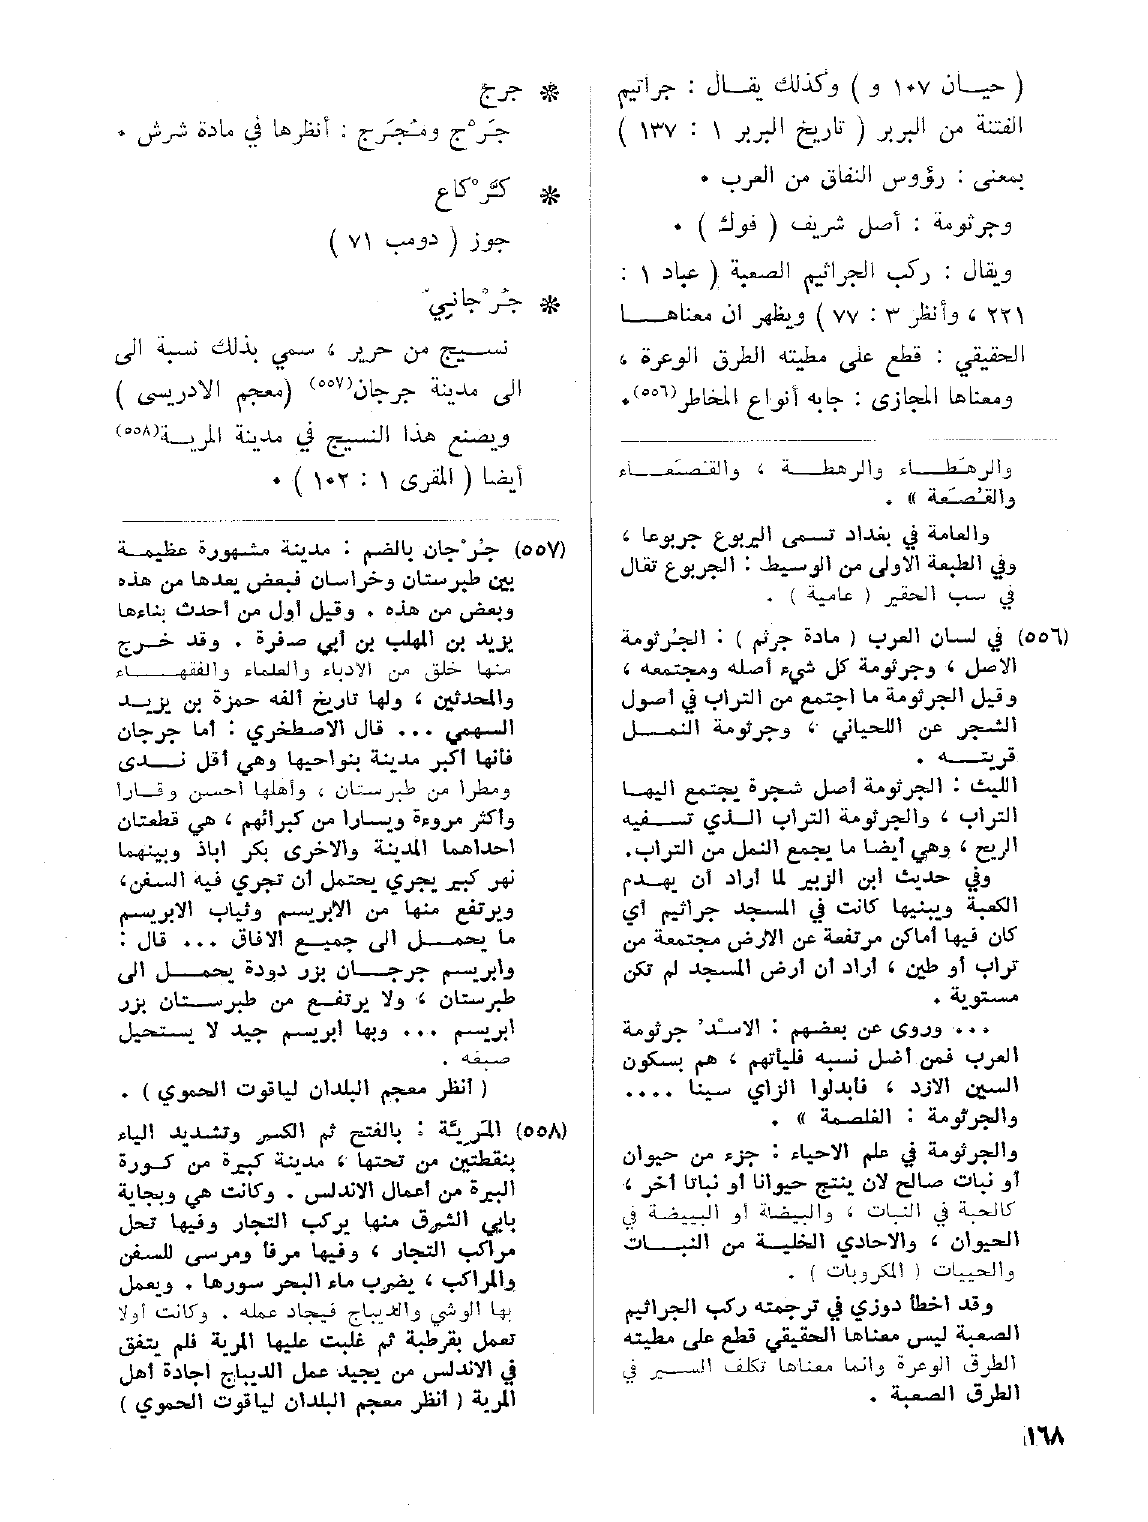 ( حيــان ١٠٧ و ) وكذلك يقــال : جراثيم
الفتنة من البربر ( تاريخ البربر ١ : ١٣٧ )
بمعنى : رؤوس النفاق من العرب ٠
وجرثومة : أصل شريف ( فوك ) ٠
ويقال : ركب الجراثيم الصعبة ( عباد ١ :
٢٢١ ، وأنظر ٣ : ٧٧ ) ويظهر ان معناهــا
الحقيقي : قطع على مطيته الطرق الوعرة ،
ومعناها المجازى : جابه أنواع المخاطر(٥٥٦)٠
والرهَطــاء والرهطة ، والقصَعــاء
والقُصَعة » ٠
والعامة في بغداد تسمى اليربوع جربوعا ،
وفي الطبعة الاولى من الوسيط : الجربوع تقال
في سب الحقير ( عامية ) ٠
(٥٥٦) في لسان العرب ( مادة جرثم ) : الجُرثومة
الاصل ، وجرثومة كل شيء أصله ومجتمعه ،
وقيل الجرثومة ما اجتمع من التراب في أصول
الشجر عن اللحياني ، وجرثومة النمــل
قريتــه ٠
الليث : الجرثومة أصل شجرة يجتمع اليهــا
التراب ، والجرثومة التراب الــذي تسفيه
الريح ، وهي أيضا ما يجمع النمل من التراب٠
وفي حديث ابن الزبير لما أراد أن يهــدم
الكعبة ويبنيها كانت في المسجد جراثيم أي
كان فيها أماكن مرتفعة عن الارض مجتمعة من
تراب أو طين ، أراد أن أرض المسجد لم تكن
مستوية ٠
٠٠٠ وروى عن بعضهم : الاسْد جرثومة
العرب فمن أضل نسبه فليأتهم ، هم بسكون
السين الازد ، فأبدلوا الزاي سينا ٠٠٠٠
والجرثومة : الغلصمة » ٠
والجرثومة في علم الاحياء : جزء من حيوان
أو نبات صالح لان ينتج حيوانا أو نباتا آخر ،
كالحبة في النبات ، والبيضة أو البييضة في
الحيوان ، والاحادي الخلية من النبــات
والحييات ( المكروبات ) ٠
وقد أخطأ دوزي في ترجمته ركب الجراثيم
الصعبة ليس معناها الحقيقي قطع على مطيته
الطرق الوعرة وانما معناها تكلف الســير في
الطرق الصعبة ٠
* جرج
جَرْج ومُجَرج : أنظرها في مادة شرش ٠
* كَرْكاع
جوز ( دومب ٧١ )
* جُرْجانيّ
نســيج من حرير ، سمي بذلك نسبة الى
الى مدينة جرجان(٥٥٧) (معجم الادريسى )
ويصنع هذا النسيج في مدينة المريــة(٥٥٨)
أيضا ( المقرى ١ : ١٠٢ ) ٠
(٥٥٧) جُرْجان بالضم : مدينة مشهورة عظيمــة
بين طبرستان وخراسان فبعض يعدها من هذه
وبعض من هذه ٠ وقيل أول من أحدث بناءها
يزيد بن المهلب بن أبي صفرة ٠ وقد خــرج
منها خلق من الادباء والعلماء والفقهــاء
والمحدثين ، ولها تاريخ ألفه حمزة بن يزيــد
السهمي ٠٠٠ قال الاصطخري : أما جرجان
فأنها أكبر مدينة بنواحيها وهي أقل نــدى
ومطرا من طبرستان ، وأهلها أحسن وقــارا
وأكثر مروءة ويسارا من كبرائهم ، هي قطعتان
احداهما المدينة والاخرى بكر اباذ وبينهما
نهر كبير يجري يحتمل أن تجري فيه السفن،
ويرتفع منها من الابريسم وثياب الابريسم
ما يحمــل الى جميــع الافاق ٠٠٠ قال :
وأبريسم جرجــان بزر دودة يحمــل الى
طبرستان ، ولا يرتفــع من طبرستان بزر
ابريسم ٠٠٠ وبها ابريسم جيد لا يستحيل
صبغه ٠
( أنظر معجم البلدان لياقوت الحموي ) ٠
(٥٥٨) المَرِيَّة : بالفتح ثم الكسر وتشديد الياء
بنقطتين من تحتها ، مدينة كبيرة من كــورة
البيرة من أعمال الاندلس ٠ وكانت هي وبجاية
بابي الشرق منها يركب التجار وفيها تحل
مراكب التجار ، وفيها مرفأ ومرسى للسفن
والمراكب ، يضرب ماء البحر سورها ٠ ويعمل
بها الوشي والديباج فيجاد عمله ٠ وكانت أولا
تعمل بقرطبة ثم غلبت عليها المرية فلم يتفق
في الاندلس من يجيد عمل الديباج اجادة أهل
المرية ( أنظر معجم البلدان لياقوت الحموي )
١٦٨